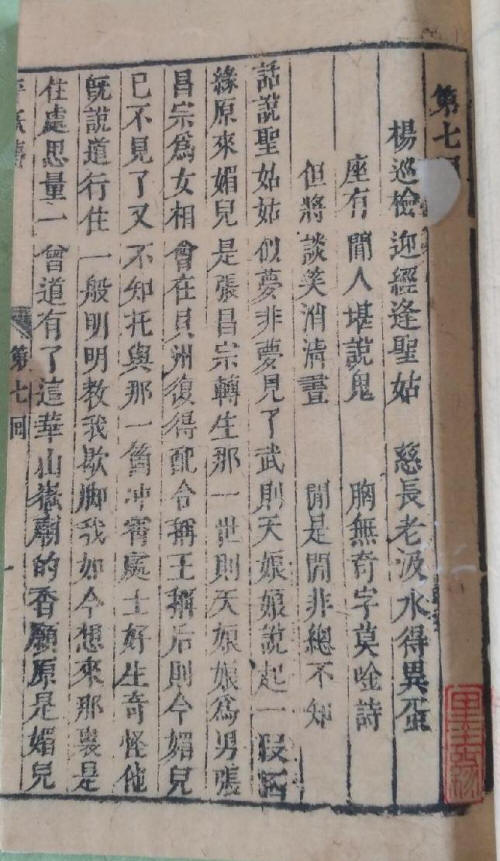 第七回
楊巡檢迎經逢聖姑　慈長老汲水得異蛋
座有閒人堪說鬼　胸無奇字莫唫詩
但將談笑消淸晝　閒是閒非總不知
話說聖姑姑似夢非夢見了武則天娘娘說起一叚因
緣原來媚兒是張昌宗轉生那一世則天娘娘爲男張
昌宗爲女相會在貝州復得配合稱王稱后則今媚兒
已不見了又不知托與那一箇冲霄處士好生奇怪他
旣說道行住一般明明教我歇脚我如今想來那裏是
住處思量一會道有了這華山嶽廟的香願原是媚兒
第七回